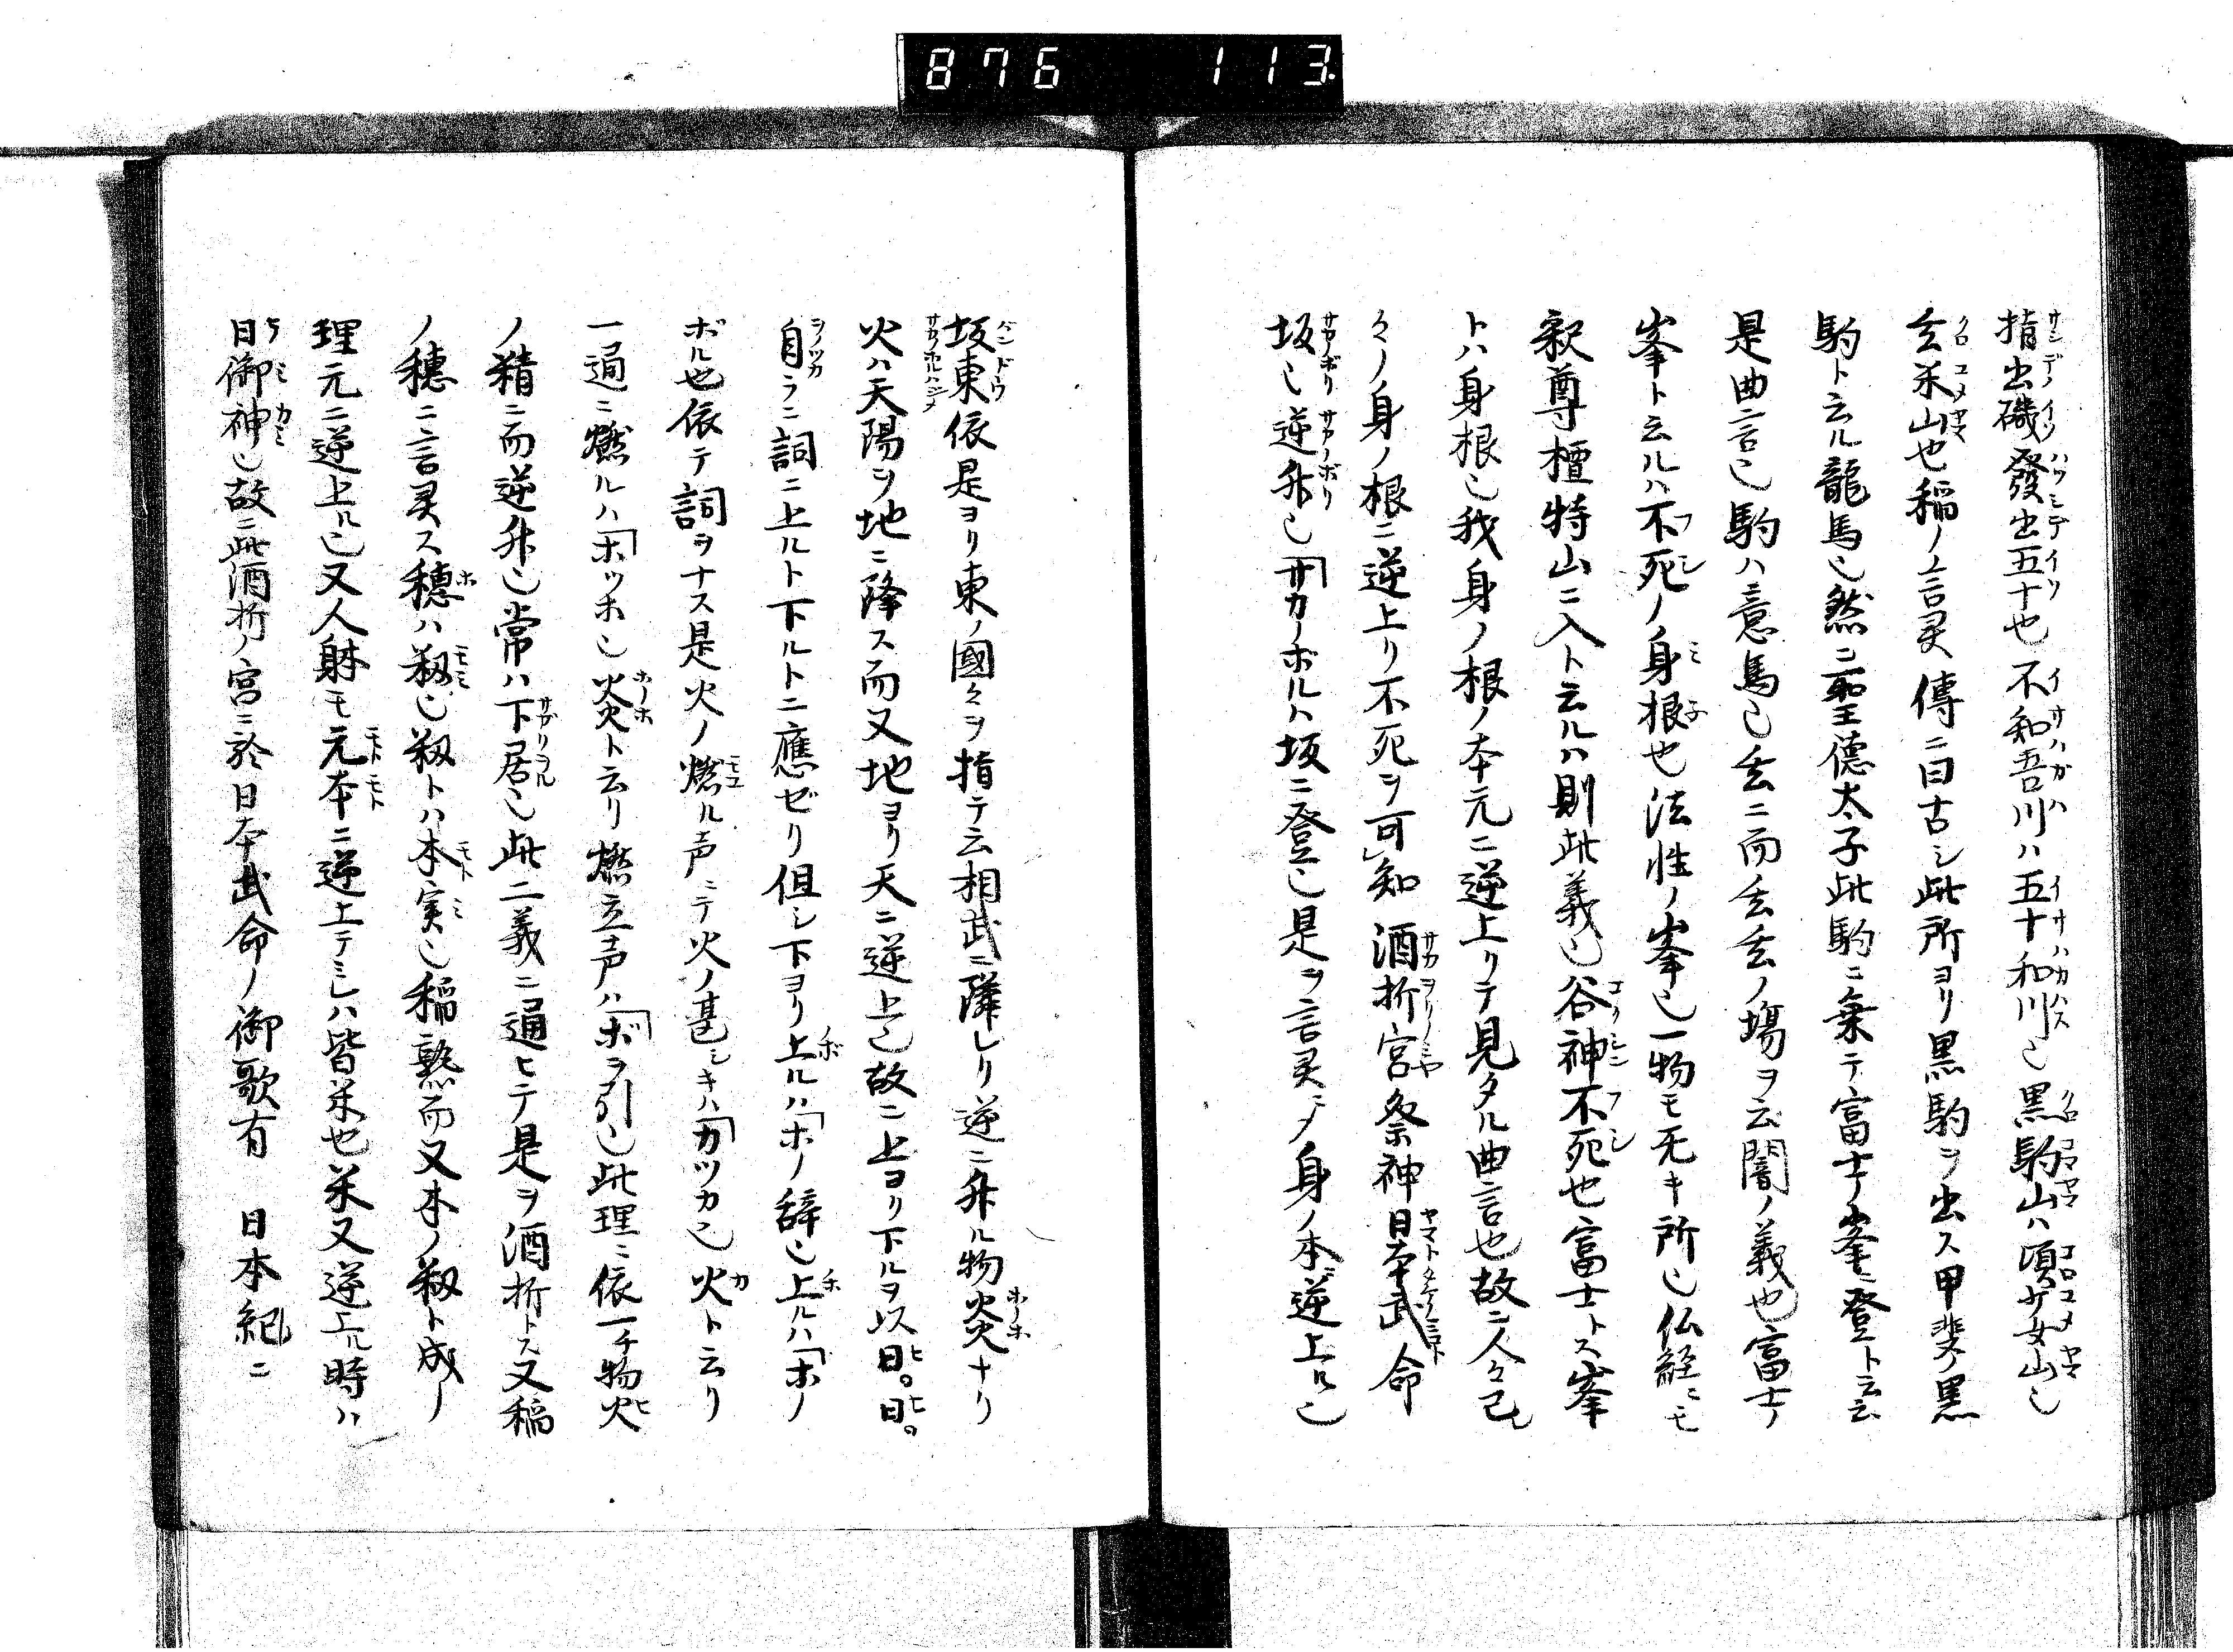 876 113
指出磯發出五十也不知吾川ハ五十和川也黒駒山ハ頃ガ女山也
玄米山也稲ノ言灵傳ニ曰古シ此所ヨリ黒駒ヲ出ス甲斐ノ黒
駒ト云ル龍馬也然ニ聖徳太子此駒ニ乗テ富士ノ峯ニ登ト云云
是曲言也駒ハ意馬也玄ニ而玄玄ノ場ヲ云闇ノ義也富士ノ
峯ト云ルハ不死ノ身根也法性ノ峯也一物モ无キ所也仏経ニモ
釈尊檀特山ニ入ト云ルハ則此義也谷神不死也富士トス峯
トハ身根也我身ノ根ノ本元ニ逆上リテ見タル曲言也故ニ人々己
々ノ身ノ根ニ逆上リ不死ヲ可知 酒折宮祭神日本武命
坂也逆升也「サカノボルハ坂ニ登也是ヲ言灵ニノ身ノ本ニ逆上ル也
坂東依是ヨリ東ノ國々ヲ指テ云相武ニ隣レリ逆ニ升ル物炎ナリ
火ハ天陽ヲ地ニ降ス而又地ヨリ天ニ逆上也故ニ上ヨリ下ルヲ以日。日。
自ラニ詞ニ上ルト下ルトニ應ゼリ但シ下ヨリ上ルハ「ホノ辞也上ルハ「ホノ
ボル也依テ詞ヲナス是火ノ燃ル声ニテ火ノ甚シキハ「カツカ也火ト云リ
一過ニ燃ルハ「ホツホ也炎ト云リ燃立声ハ「ボヲ引也此理ニ依一チ物火
ノ精ニ而逆升也常ハ下居也此二義ニ通ヒテ是ヲ酒折トス又稲
ノ穂ニ言灵ス穂ハ籾也籾トハ本実也稲熟而又本ノ籾ト成ノ
理元ニ逆上ル也又人躰モ元本ニ逆上テミレハ皆米也米又逆上ル時ハ
日御神也故ニ此酒折ノ宮ニ於日本武命ノ御歌有 日本紀ニ